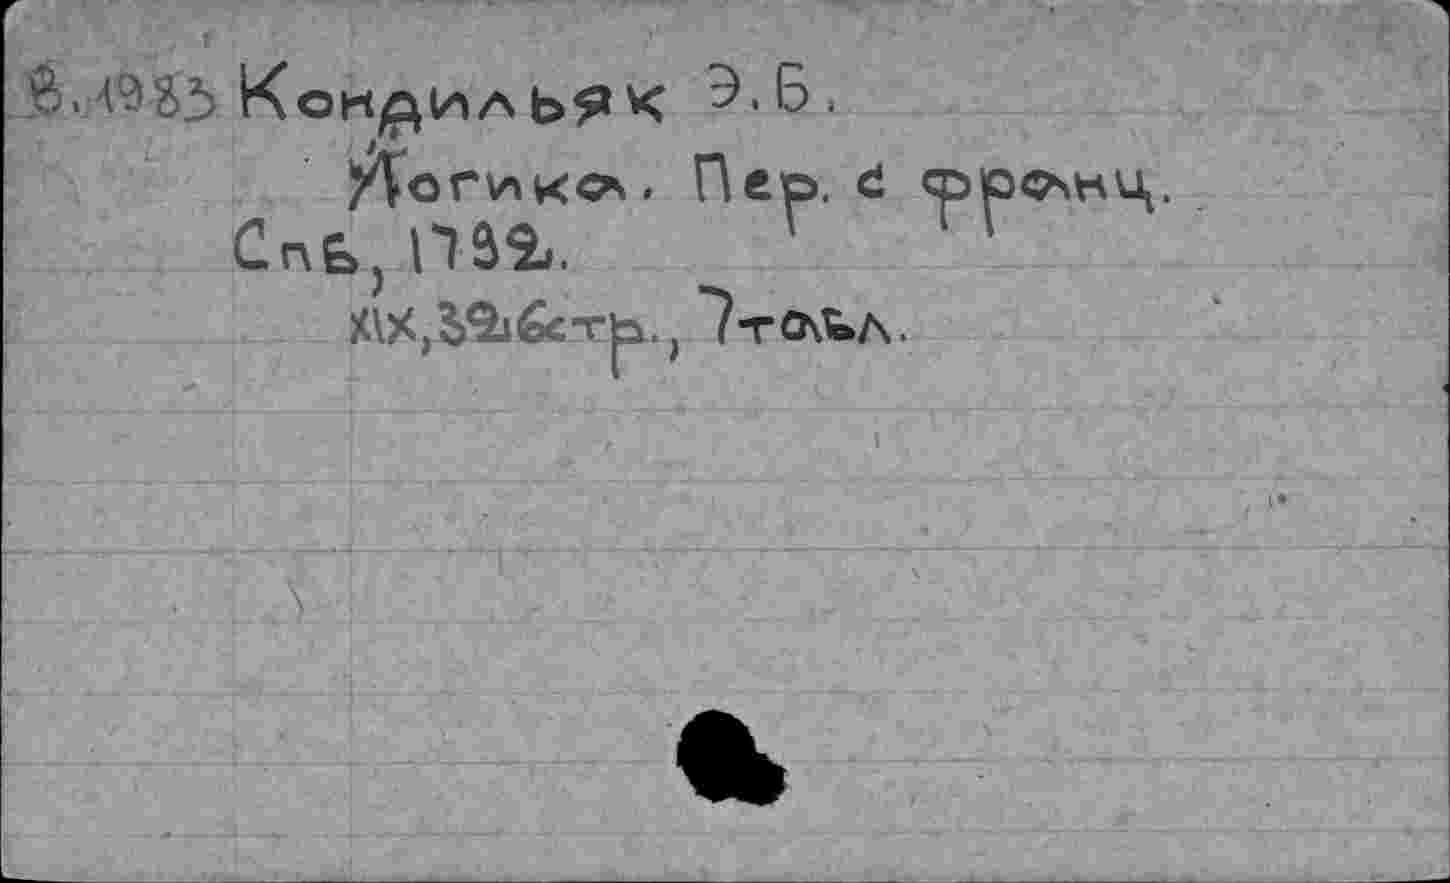 В.1983 Кондильяк Э.Б.
Логика. Пер. с франц.
Спб, 1792.
XIX, 326 стр., 7 табл.